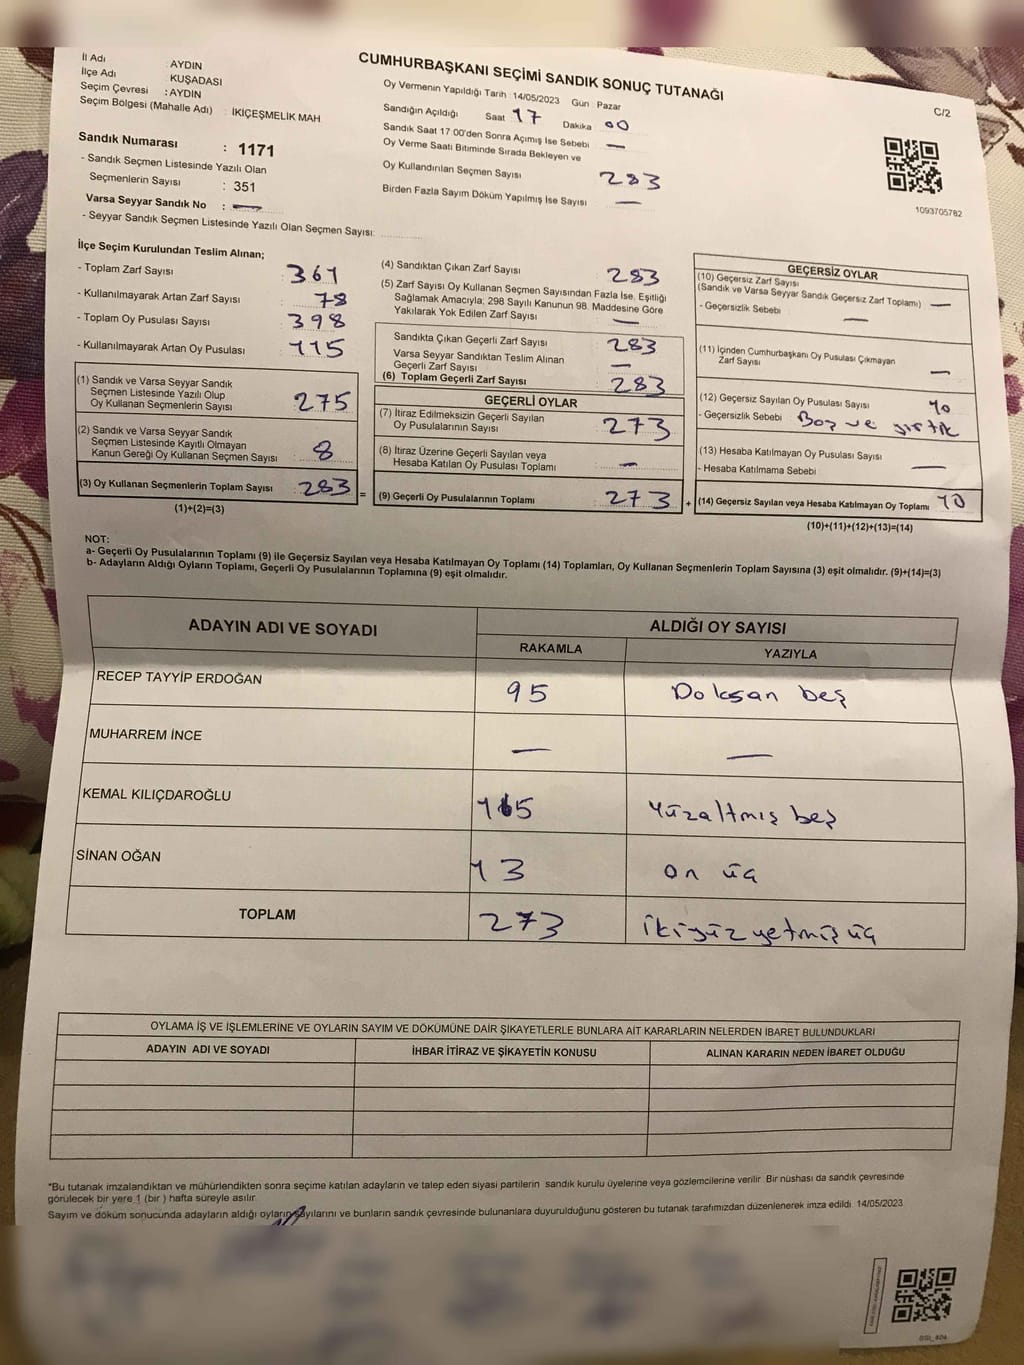 CUMHURBAŞKANI SEÇİMİ SANDIK SONUÇ TUTANAĞI
C/2
İl Adı AYDIN
İlçe Adı KUŞADASI
Seçim Çevresi : AYDIN
Seçim Bölgesi (Mahalle Adı) : İKİÇEŞMELİK MAH
Sandık Numarası : 1171
- Sandık Seçmen Listesinde Yazılı Olan
Seçmenlerin Sayısı : 351
Varsa Seyyar Sandık No : —
- Seyyar Sandık Seçmen Listesinde Yazılı Olan Seçmen Sayısı:
Oy Vermenin Yapıldığı Tarih : 14/05/2023 Gün Pazar
Sandığın Açıldığı Saat 17 Dakika 00
Sandık Saat 17 00'den Sonra Açımış İse Sebebi —
Oy Verme Saati Bitiminde Sırada Bekleyen ve
Oy Kullandırılan Seçmen Sayısı 283
Birden Fazla Sayım Döküm Yapılmış İse Sayısı —
1093705782
İlçe Seçim Kurulundan Teslim Alınan;
- Toplam Zarf Sayısı 361
- Kullanılmayarak Artan Zarf Sayısı : 78
- Toplam Oy Pusulası Sayısı : 398
- Kullanılmayarak Artan Oy Pusulası 115
(1) Sandık ve Varsa Seyyar Sandık
Seçmen Listesinde Yazılı Olup
Oy Kullanan Seçmenlerin Sayısı 275
(2) Sandık ve Varsa Seyyar Sandık
Seçmen Listesinde Kayıtlı Olmayan
Kanun Gereği Oy Kullanan Seçmen Sayısı 8
(3) Oy Kullanan Seçmenlerin Toplam Sayısı 283 =
(1)+(2)=(3)
(4) Sandıktan Çıkan Zarf Sayısı : 283
(5) Zarf Sayısı Oy Kullanan Seçmen Sayısından Fazla İse, Eşitliği
Sağlamak Amacıyla; 298 Sayılı Kanunun 98. Maddesine Göre
Yakılarak Yok Edilen Zarf Sayısı —
Sandıkta Çıkan Geçerli Zarf Sayısı 283
Varsa Seyyar Sandıktan Teslim Alınan
Geçerli Zarf Sayısı —
(6) Toplam Geçerli Zarf Sayısı 283
GEÇERLİ OYLAR
(7) İtiraz Edilmeksizin Geçerli Sayılan
Oy Pusulalarının Sayısı 273
(8) İtiraz Üzerine Geçerli Sayılan veya
Hesaba Katılan Oy Pusulası Toplamı —
(9) Geçerli Oy Pusulalarının Toplamı 273 +
GEÇERSİZ OYLAR
(10) Geçersiz Zarf Sayısı
(Sandık ve Varsa Seyyar Sandık Geçersiz Zarf Toplamı) —
- Geçersizlik Sebebi —
(11) İçinden Cumhurbaşkanı Oy Pusulası Çıkmayan
Zarf Sayısı —
(12) Geçersiz Sayılan Oy Pusulası Sayısı 10
- Geçersizlik Sebebi Boş ve yırtık
(13) Hesaba Katılmayan Oy Pusulası Sayısı —
- Hesaba Katılmama Sebebi
(14) Geçersiz Sayılan veya Hesaba Katılmayan Oy Toplamı 10
(10)+(11)+(12)+(13)=(14)
NOT:
a- Geçerli Oy Pusulalarının Toplamı (9) ile Geçersiz Sayılan veya Hesaba Katılmayan Oy Toplamı (14) Toplamları, Oy Kullanan Seçmenlerin Toplam Sayısına (3) eşit olmalıdır. (9)+(14)=(3)
b- Adayların Aldığı Oyların Toplamı, Geçerli Oy Pusulalarının Toplamına (9) eşit olmalıdır.
ADAYIN ADI VE SOYADI ALDIĞI OY SAYISI
RAKAMLA YAZIYLA
RECEP TAYYİP ERDOĞAN 95 Doksan beş
MUHARREM İNCE — —
KEMAL KILIÇDAROĞLU 165 Yüzaltmış beş
SİNAN OĞAN 13 on üç
TOPLAM 273 ikiyüz yetmiş üç
OYLAMA İŞ VE İŞLEMLERİNE VE OYLARIN SAYIM VE DÖKÜMÜNE DAİR ŞİKAYETLERLE BUNLARA AİT KARARLARIN NELERDEN İBARET BULUNDUKLARI
ADAYIN ADI VE SOYADI İHBAR İTİRAZ VE ŞİKAYETİN KONUSU ALINAN KARARIN NEDEN İBARET OLDUĞU
*Bu tutanak imzalandıktan ve mühürlendikten sonra seçime katılan adayların ve talep eden siyasi partilerin sandık kurulu üyelerine veya gözlemcilerine verilir. Bir nüshası da sandık çevresinde
görülecek bir yere 1 (bir ) hafta süreyle asılır.
Sayım ve döküm sonucunda adayların aldığı oyların sayılarını ve bunların sandık çevresinde bulunanlara duyurulduğunu gösteren bu tutanak tarafımızdan düzenlenerek imza edildi. 14/05/2023